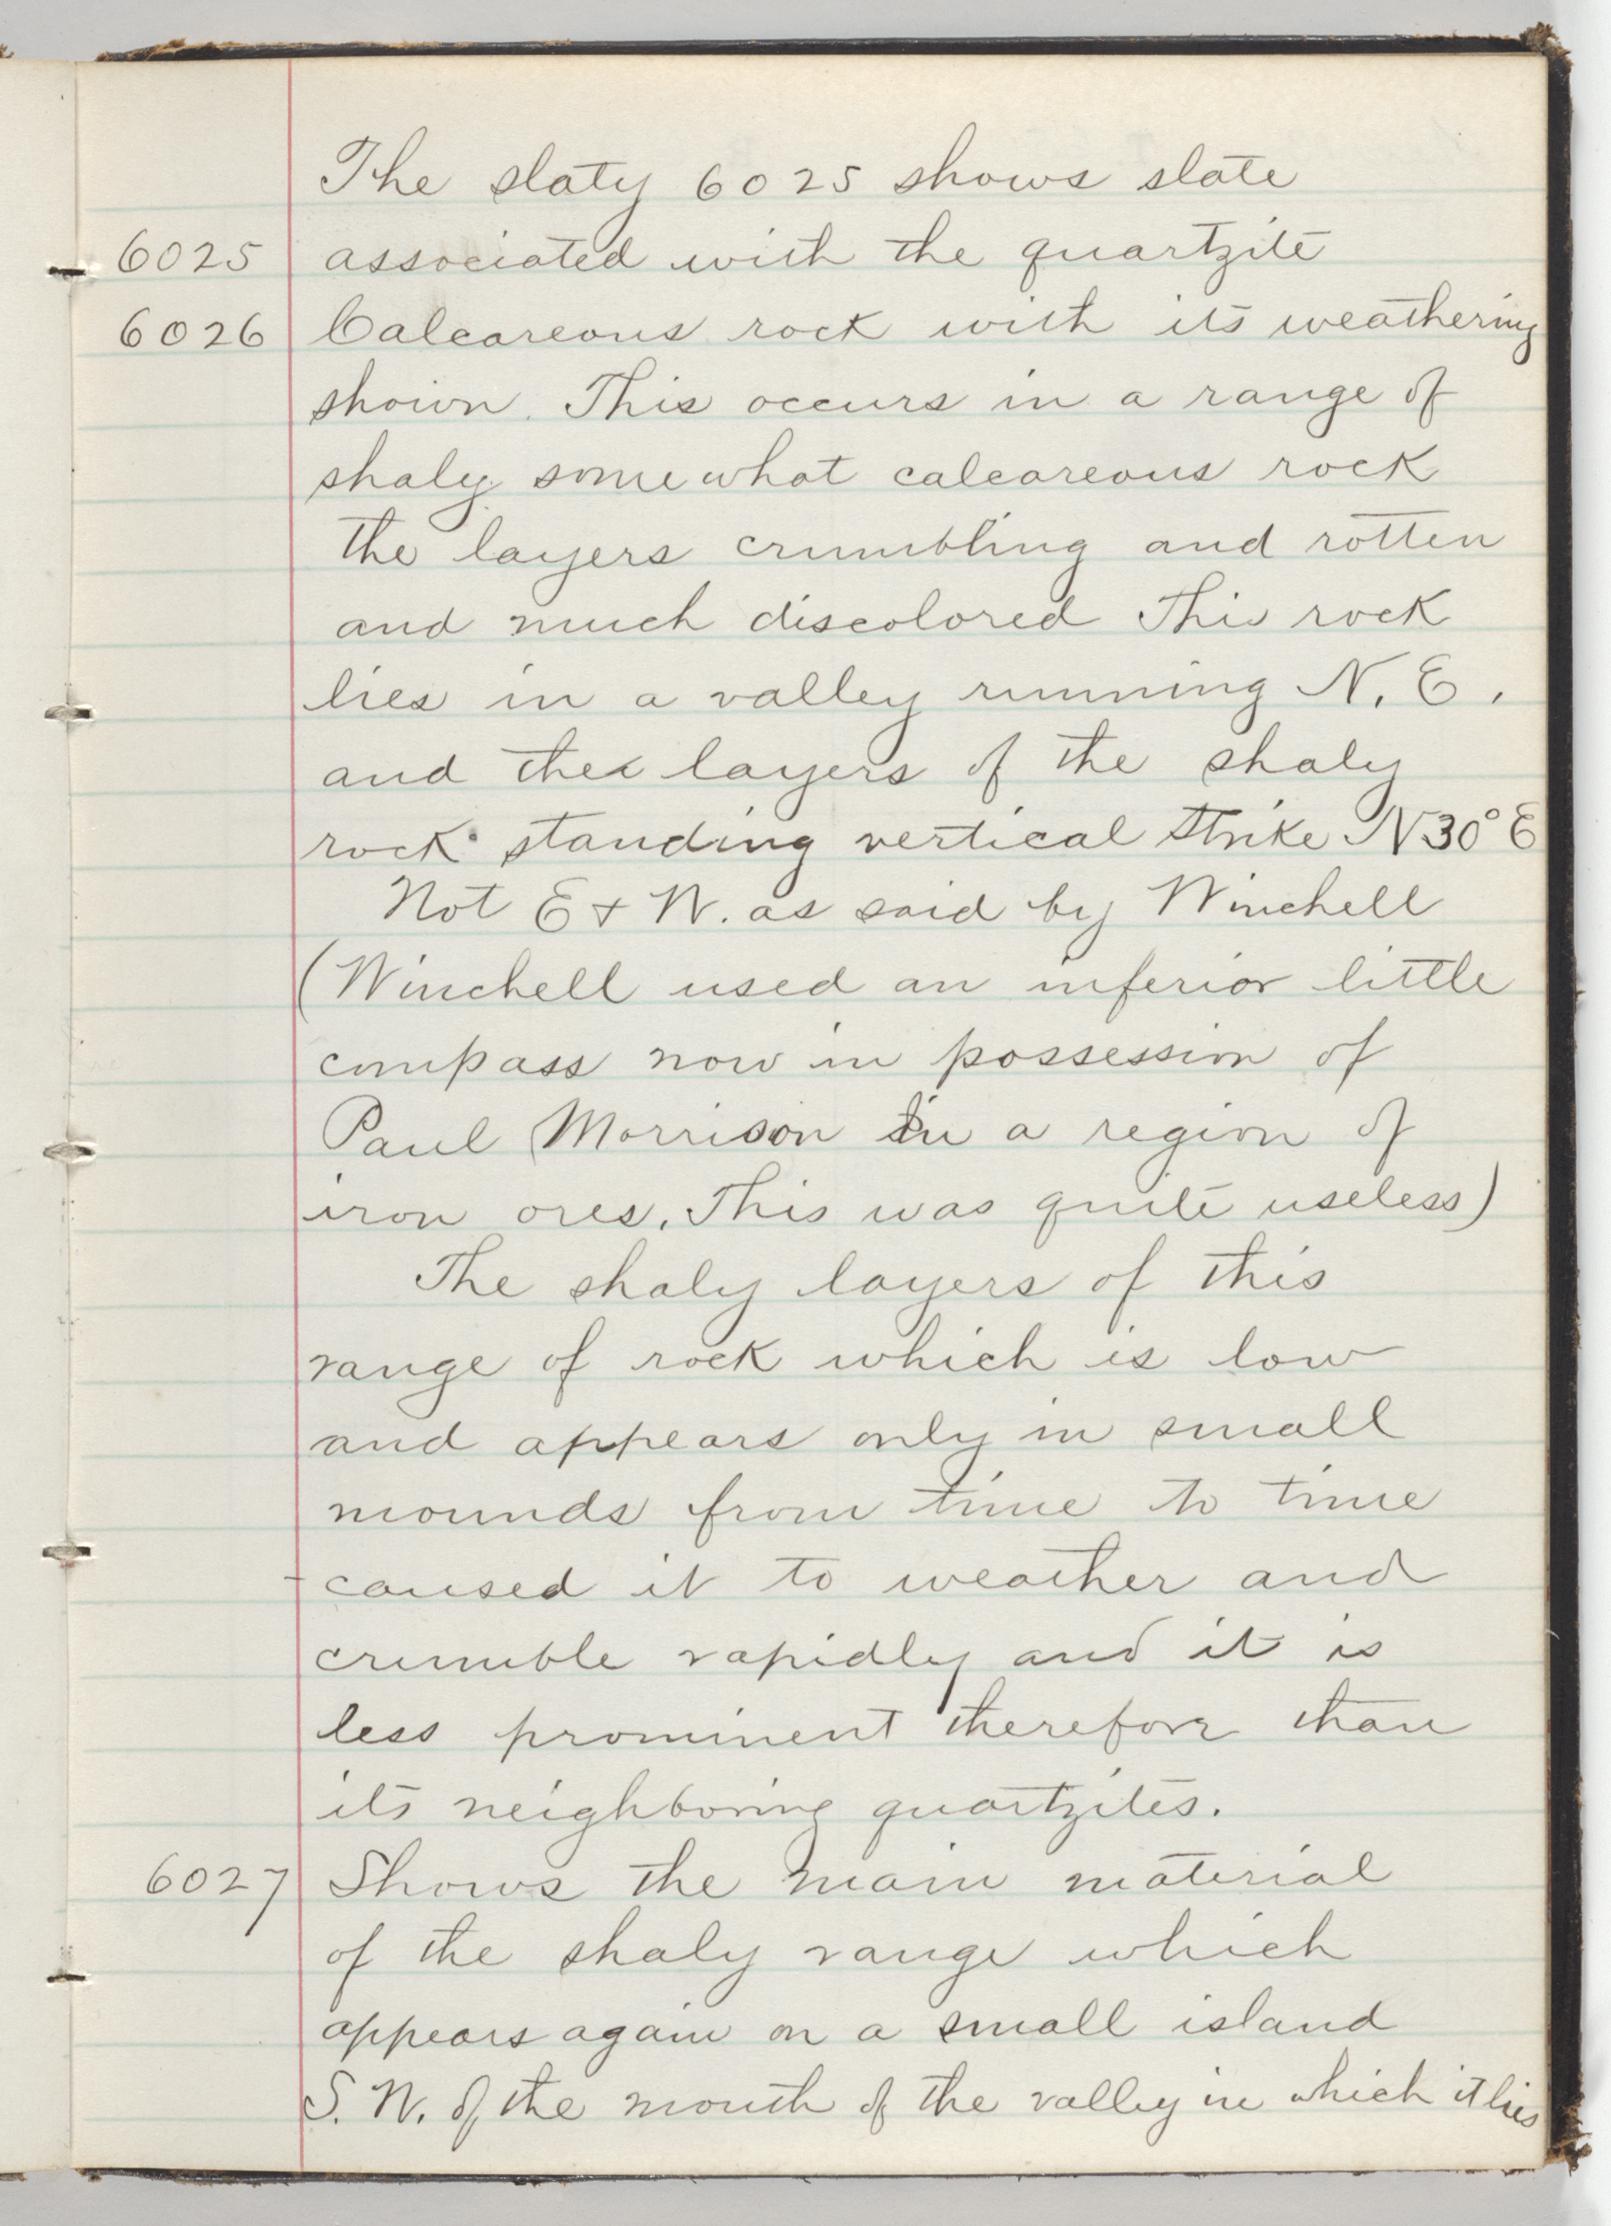 The slaty 6025 shows slate
6025 associated with the quartzite
6026 Calcareous rock with its weathering
shown. This occurs in a range of
shaly somewhat calcareous rock
the layers crumbling and rotten
and much discolored This rock
lies in a valley running N. E.
and the layers of the shaly
rock standing vertical Strike N30° E
Not E + W. as said by Winchell
(Winchell used an inferior little
compass now in possession of
Paul Morrison In a region of
iron ores. This was quite useless)
The shaly layers of this
range of rock which is low
and appears only in small
mounds from time to time
caused it to weather and
crumble rapidly and it is
less prominent therefore than
its neighboring quartzites.
6027 Shows the main material
of the shaly range which
appears again on a small island
S. W. of the mouth of the valley in which it lies